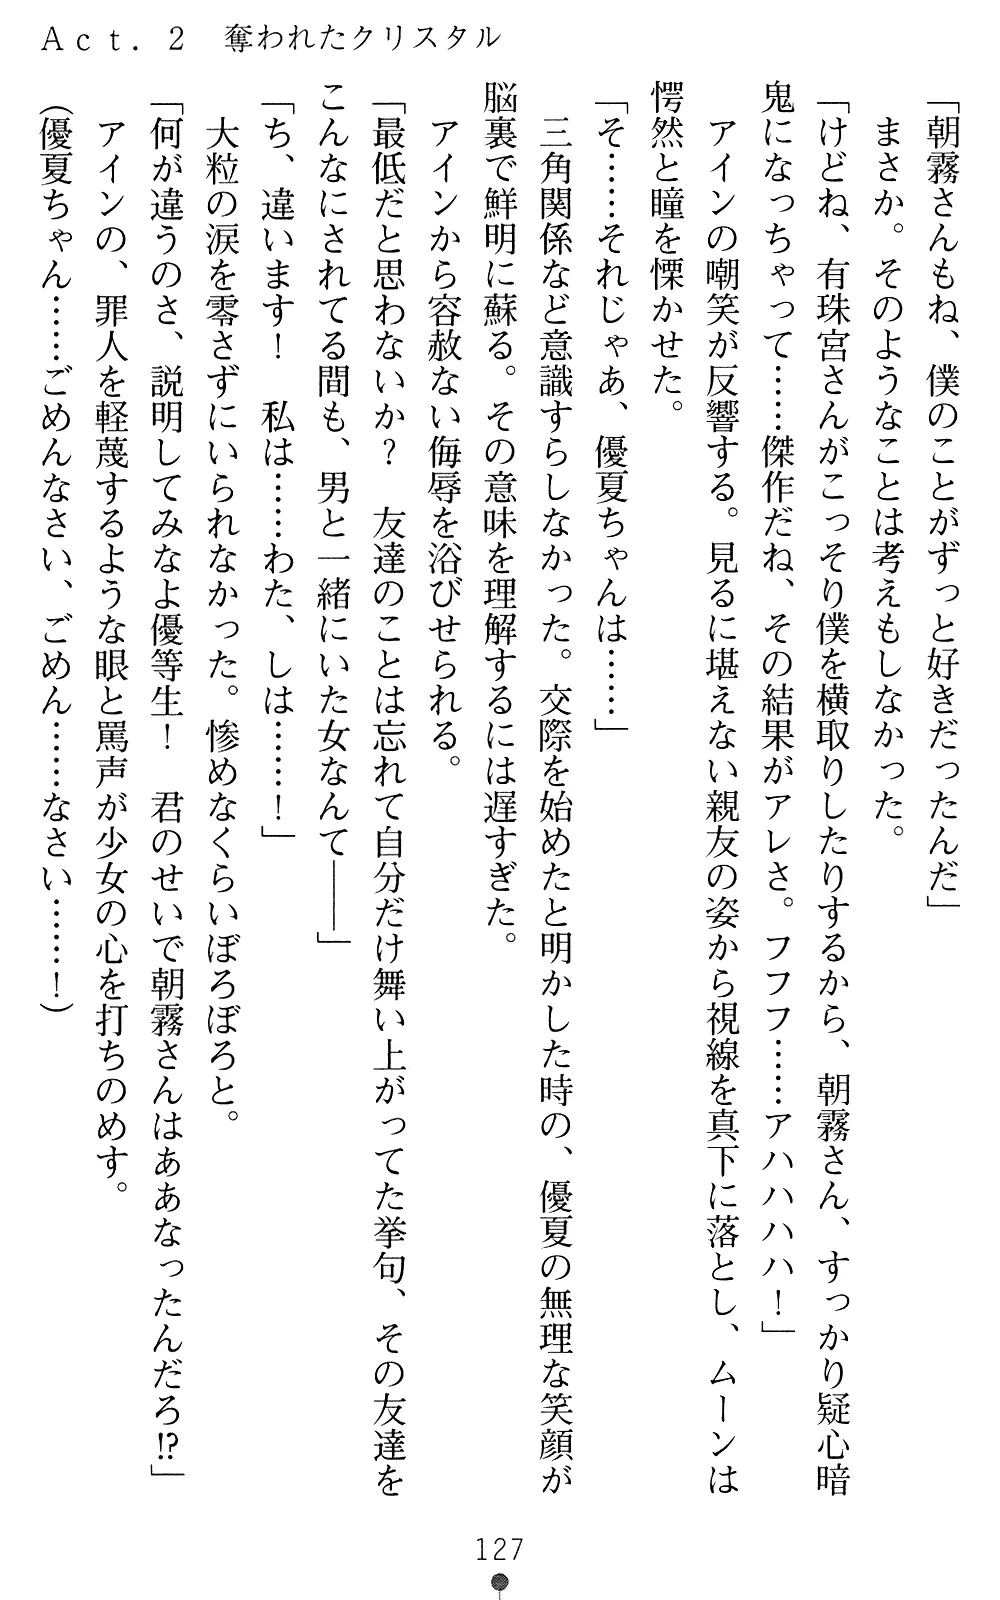 Act. 2　奪われたクリスタル
「朝霧さんもね、僕のことがずっと好きだったんだ」
　まさか。そのようなことは考えもしなかった。
「けどね、有珠宮さんがこっそり僕を横取りしたりするから、朝霧さん、すっかり疑心暗
鬼になっちゃって……傑作だね、その結果がアレさ。フフフ……アハハハハ！」
　アインの嘲笑が反響する。見るに堪えない親友の姿から視線を真下に落とし、ムーンは
愕然と瞳を慄かせた。
「そ……それじゃあ、優夏ちゃんは……」
　三角関係など意識すらしなかった。交際を始めたと明かした時の、優夏の無理な笑顔が
脳裏で鮮明に蘇る。その意味を理解するには遅すぎた。
　アインから容赦ない侮辱を浴びせられる。
「最低だと思わないか？　友達のことは忘れて自分だけ舞い上がってた挙句、その友達を
こんなにされてる間も、男と一緒にいた女なんて――」
「ち、違います！　私は……わた、しは……！」
　大粒の涙を零さずにいられなかった。惨めなくらいぼろぼろと。
「何が違うのさ、説明してみなよ優等生！　君のせいで朝霧さんはああなったんだろ!?」
　アインの、罪人を軽蔑するような眼と罵声が少女の心を打ちのめす。
（優夏ちゃん……ごめんなさい、ごめん……なさい……！）
127